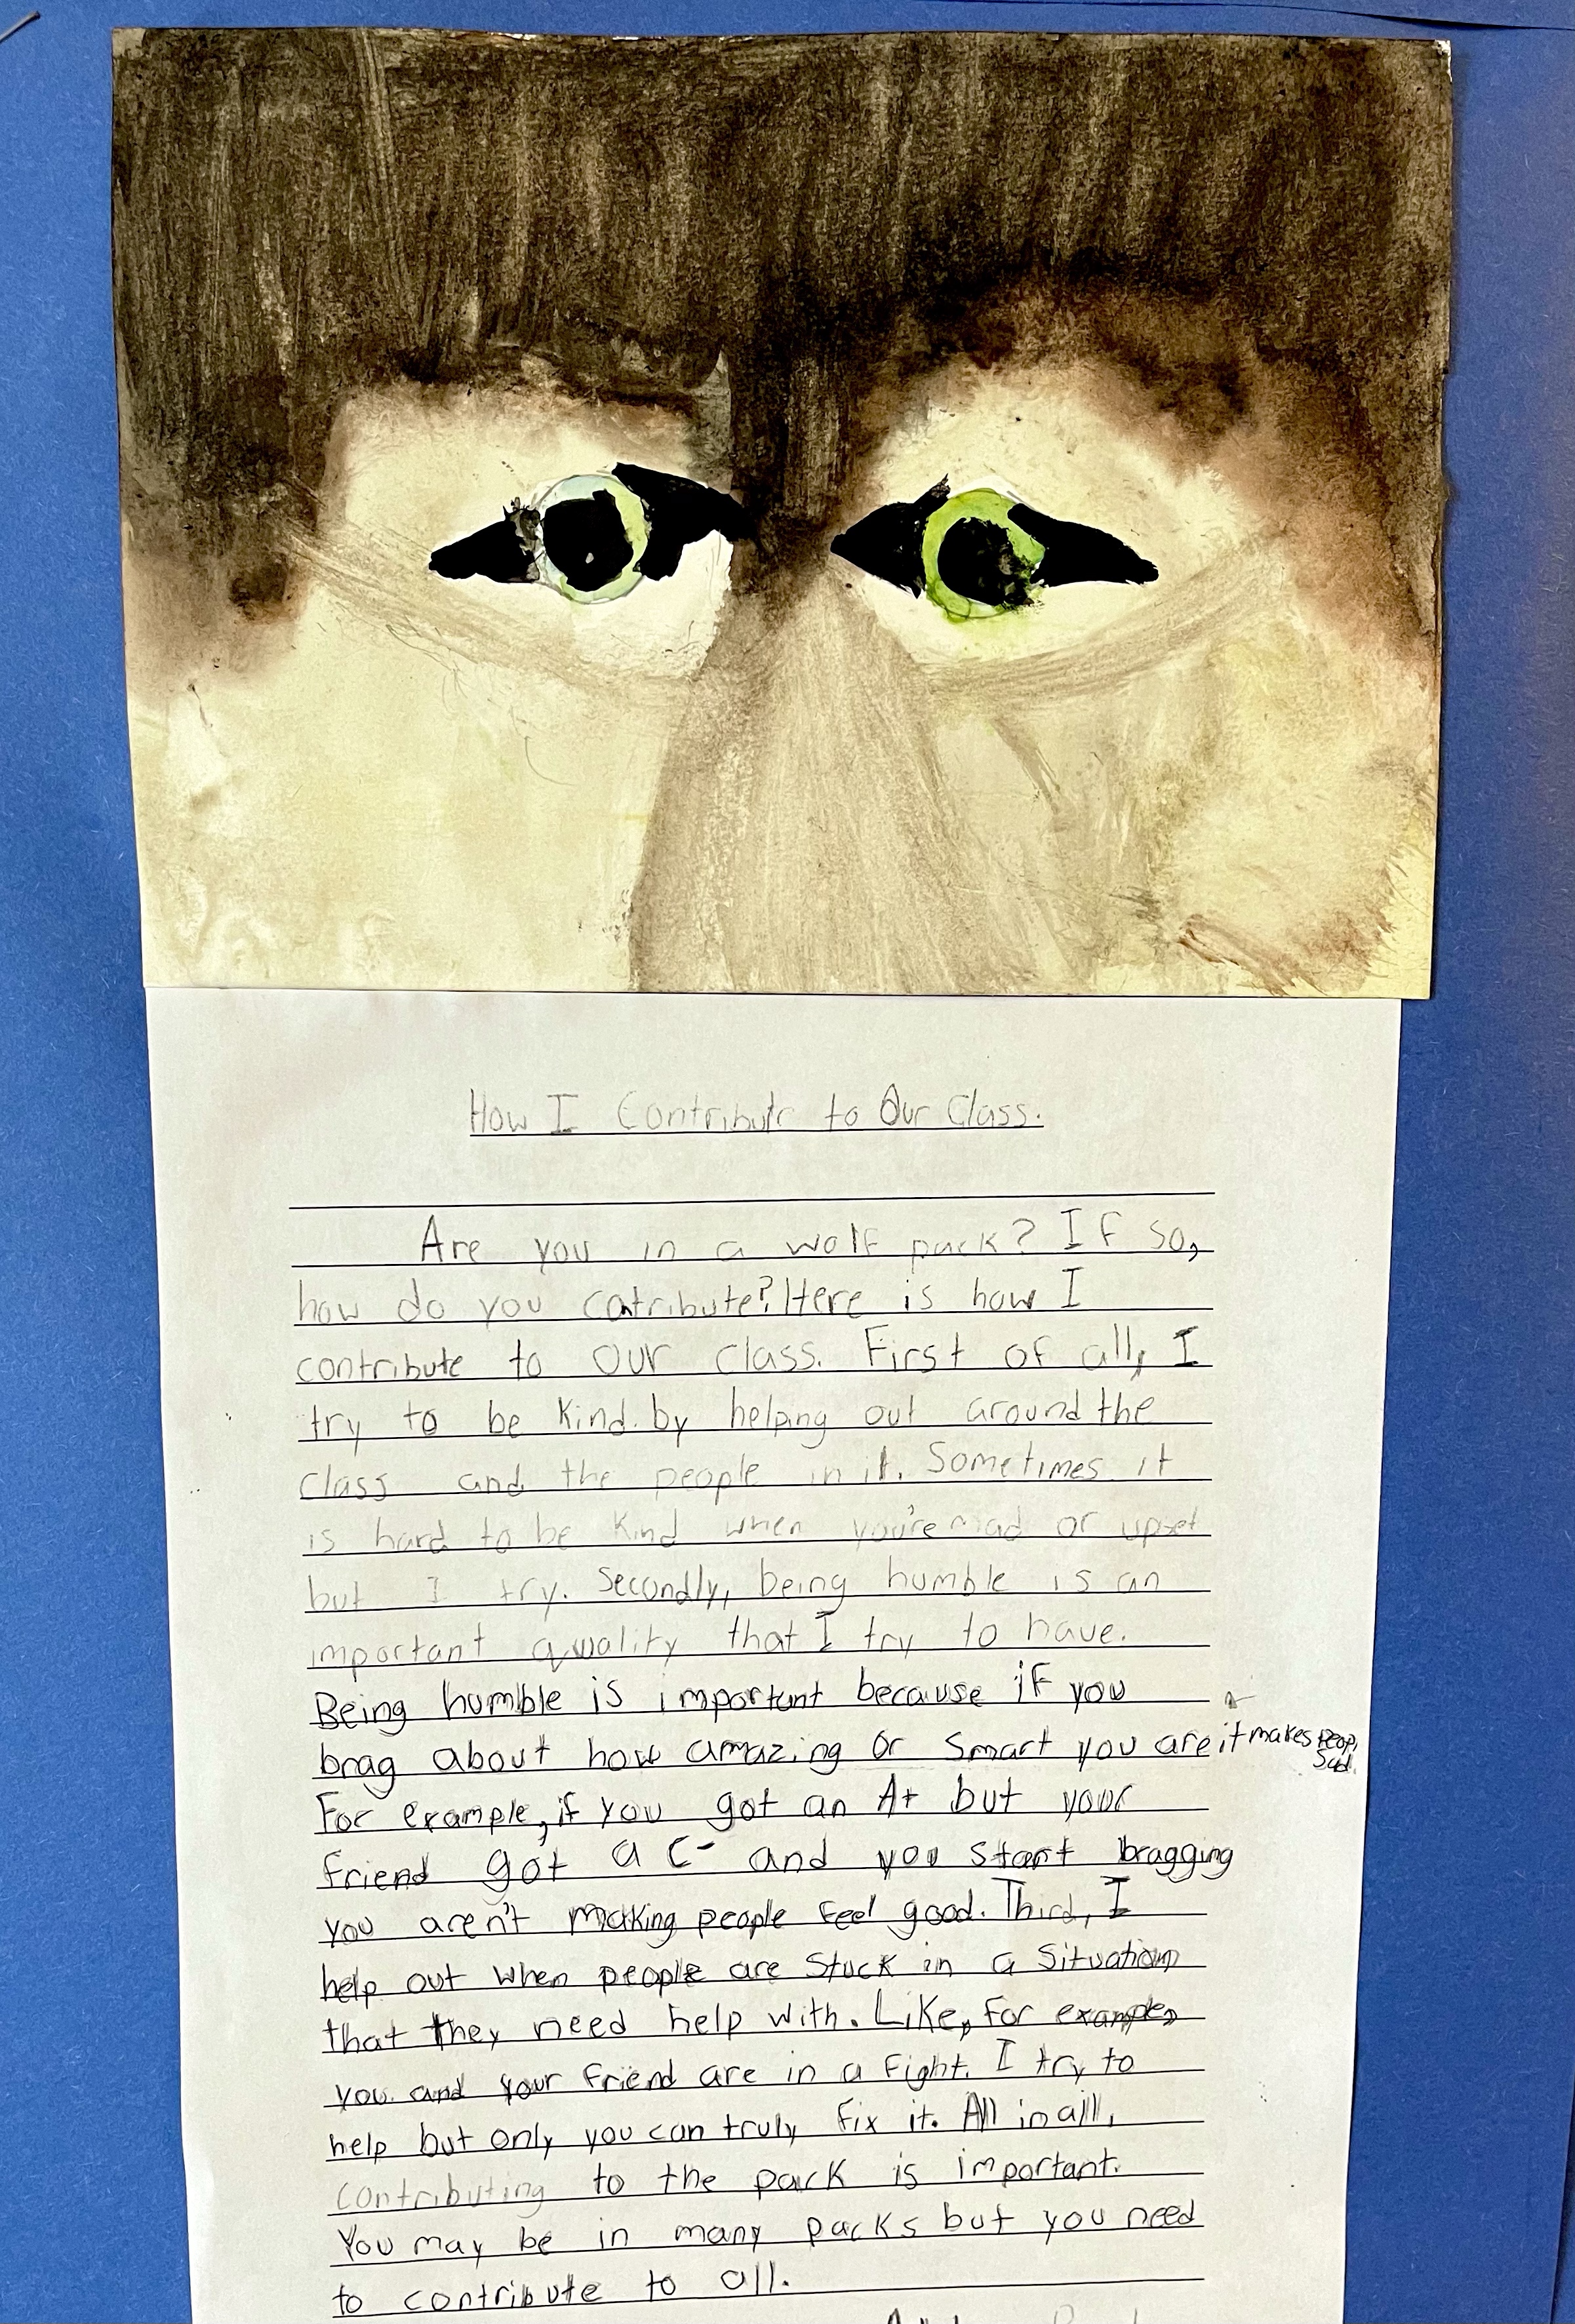 How I Contribute to Our Class.
Are you in a wolf pack? If so,
how do you contribute? Here is how I
contribute to our class. First of all, I
try to be kind by helping out around the
class and the people in it. Sometimes it
is hard to be kind when you're mad or upset
but I try. Secondly, being humble is an
important quality that I try to have.
Being humble is important because if you
brag about how amazing or smart you are it makes
sad.
For example, if you got an A+ but your
friend got a C- and you start bragging
you aren't making people feel good. Third, I
help out when people are stuck in a situation
that they need help with. Like, for example,
you and your friend are in a fight. I try to
help but only you can truly fix it. All in all,
contributing to the pack is important.
You may be in many packs but you need
to contribute to all.